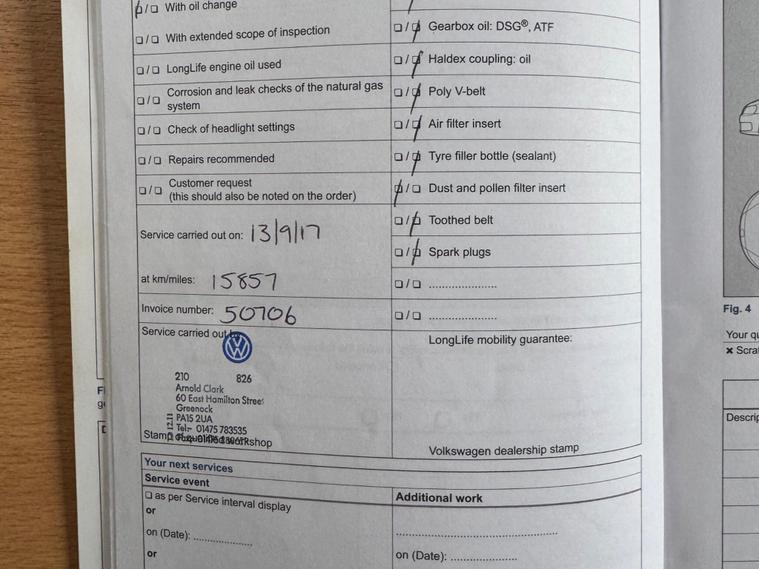 ❏/❏ With oil change
❏/❏ With extended scope of inspection
❏/❏ LongLife engine oil used
❏/❏ Corrosion and leak checks of the natural gas
system
❏/❏ Check of headlight settings
❏/❏ Repairs recommended
❏/❏ Customer request
(this should also be noted on the order)
Service carried out on: 13/9/17
at km/miles: 15857
Invoice number: 50706
Service carried out
210 826
Arnold Clark
60 East Hamilton Street
Greenock
PA15 2UA
Tel:- 01475 783535
Stamp of qualified workshop
❏/❏ Gearbox oil: DSG®, ATF
❏/❏ Haldex coupling: oil
❏/❏ Poly V-belt
❏/❏ Air filter insert
❏/❏ Tyre filler bottle (sealant)
❏/❏ Dust and pollen filter insert
❏/❏ Toothed belt
❏/❏ Spark plugs
❏/❏ .....................
❏/❏ .....................
LongLife mobility guarantee:
Volkswagen dealership stamp
Your next services
Service event
❏ as per Service interval display
or
on (Date): ..................
or
Additional work
..................................................
on (Date): ....................
Fig. 4
Your qu
× Scra
Descrip